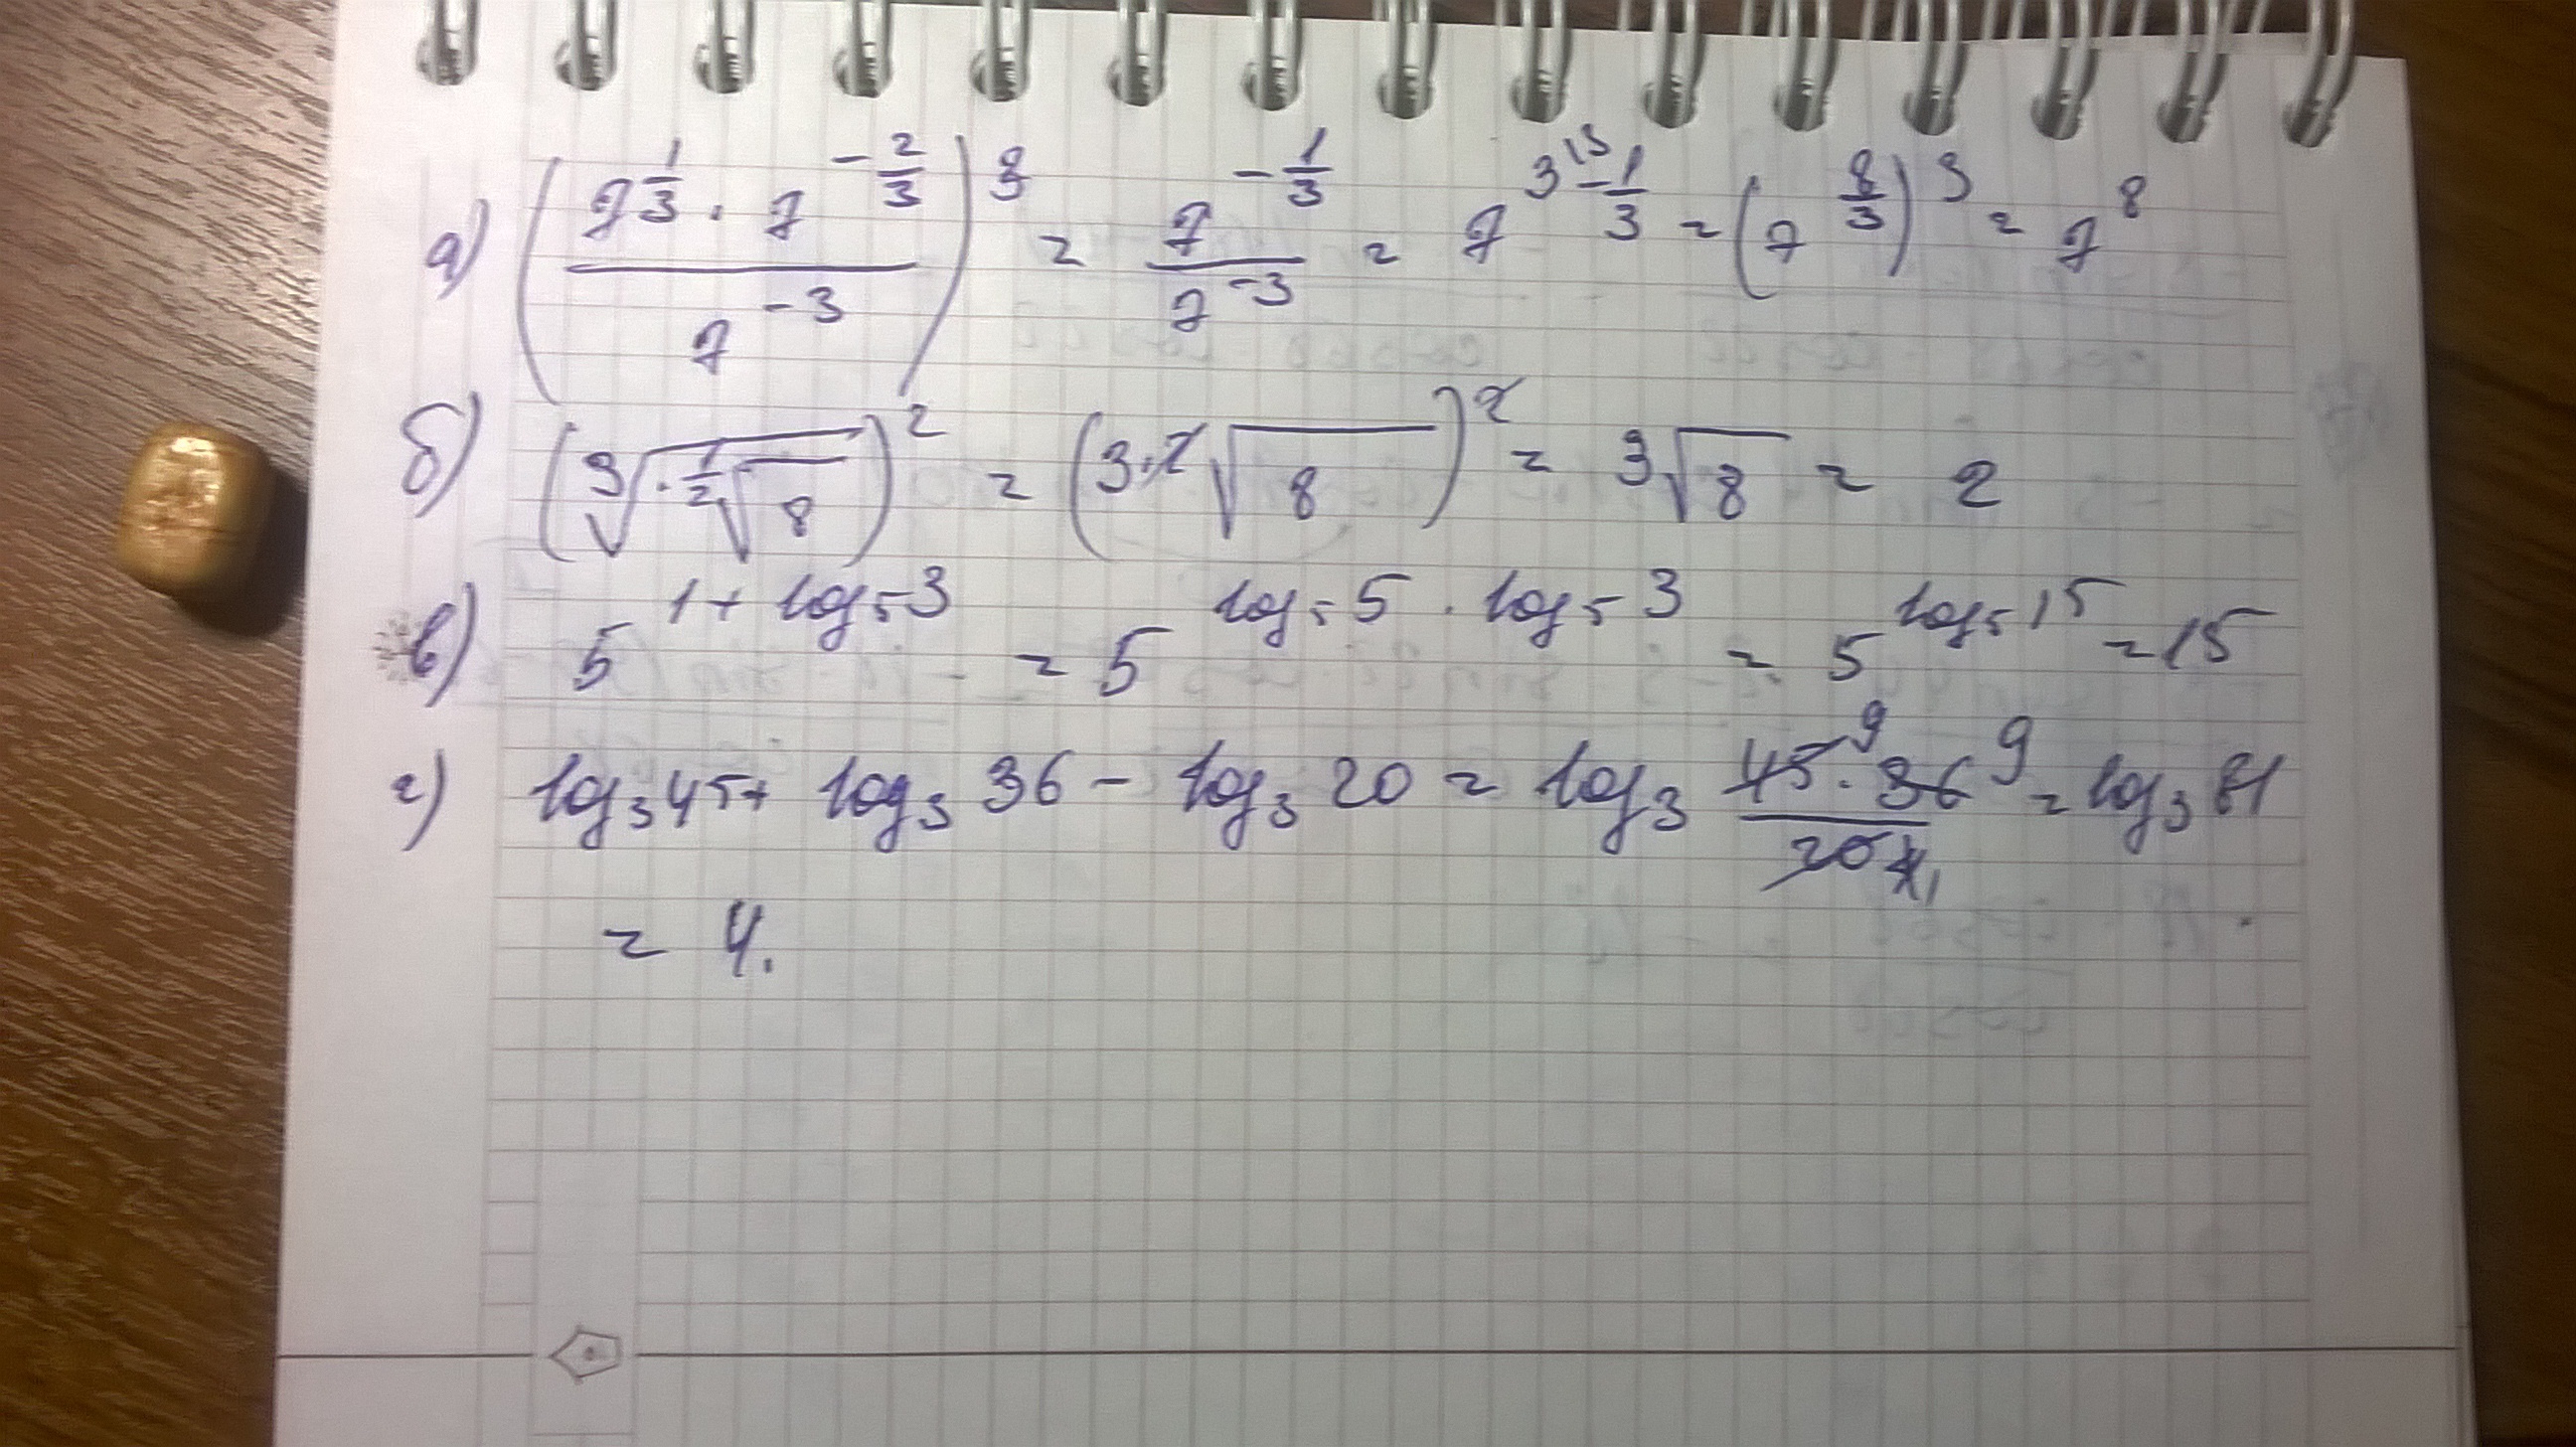 а) (7^(1/3) · 7^(-2/3) / 7^(-3))^3 = 7^(-1/3) / 7^(-3) = 7^(3 - 1/3) = (7^(8/3))^3 = 7^8
б) (∛(√8))^2 = (3·2√8)^2 = ∛8 = 2
в) 5^(1 + log₅3) = 5^(log₅5 · log₅3) = 5^(log₅15) = 15
г) log₃45 + log₃36 - log₃20 = log₃ (45 · 36 / 20) = log₃81
= 4.